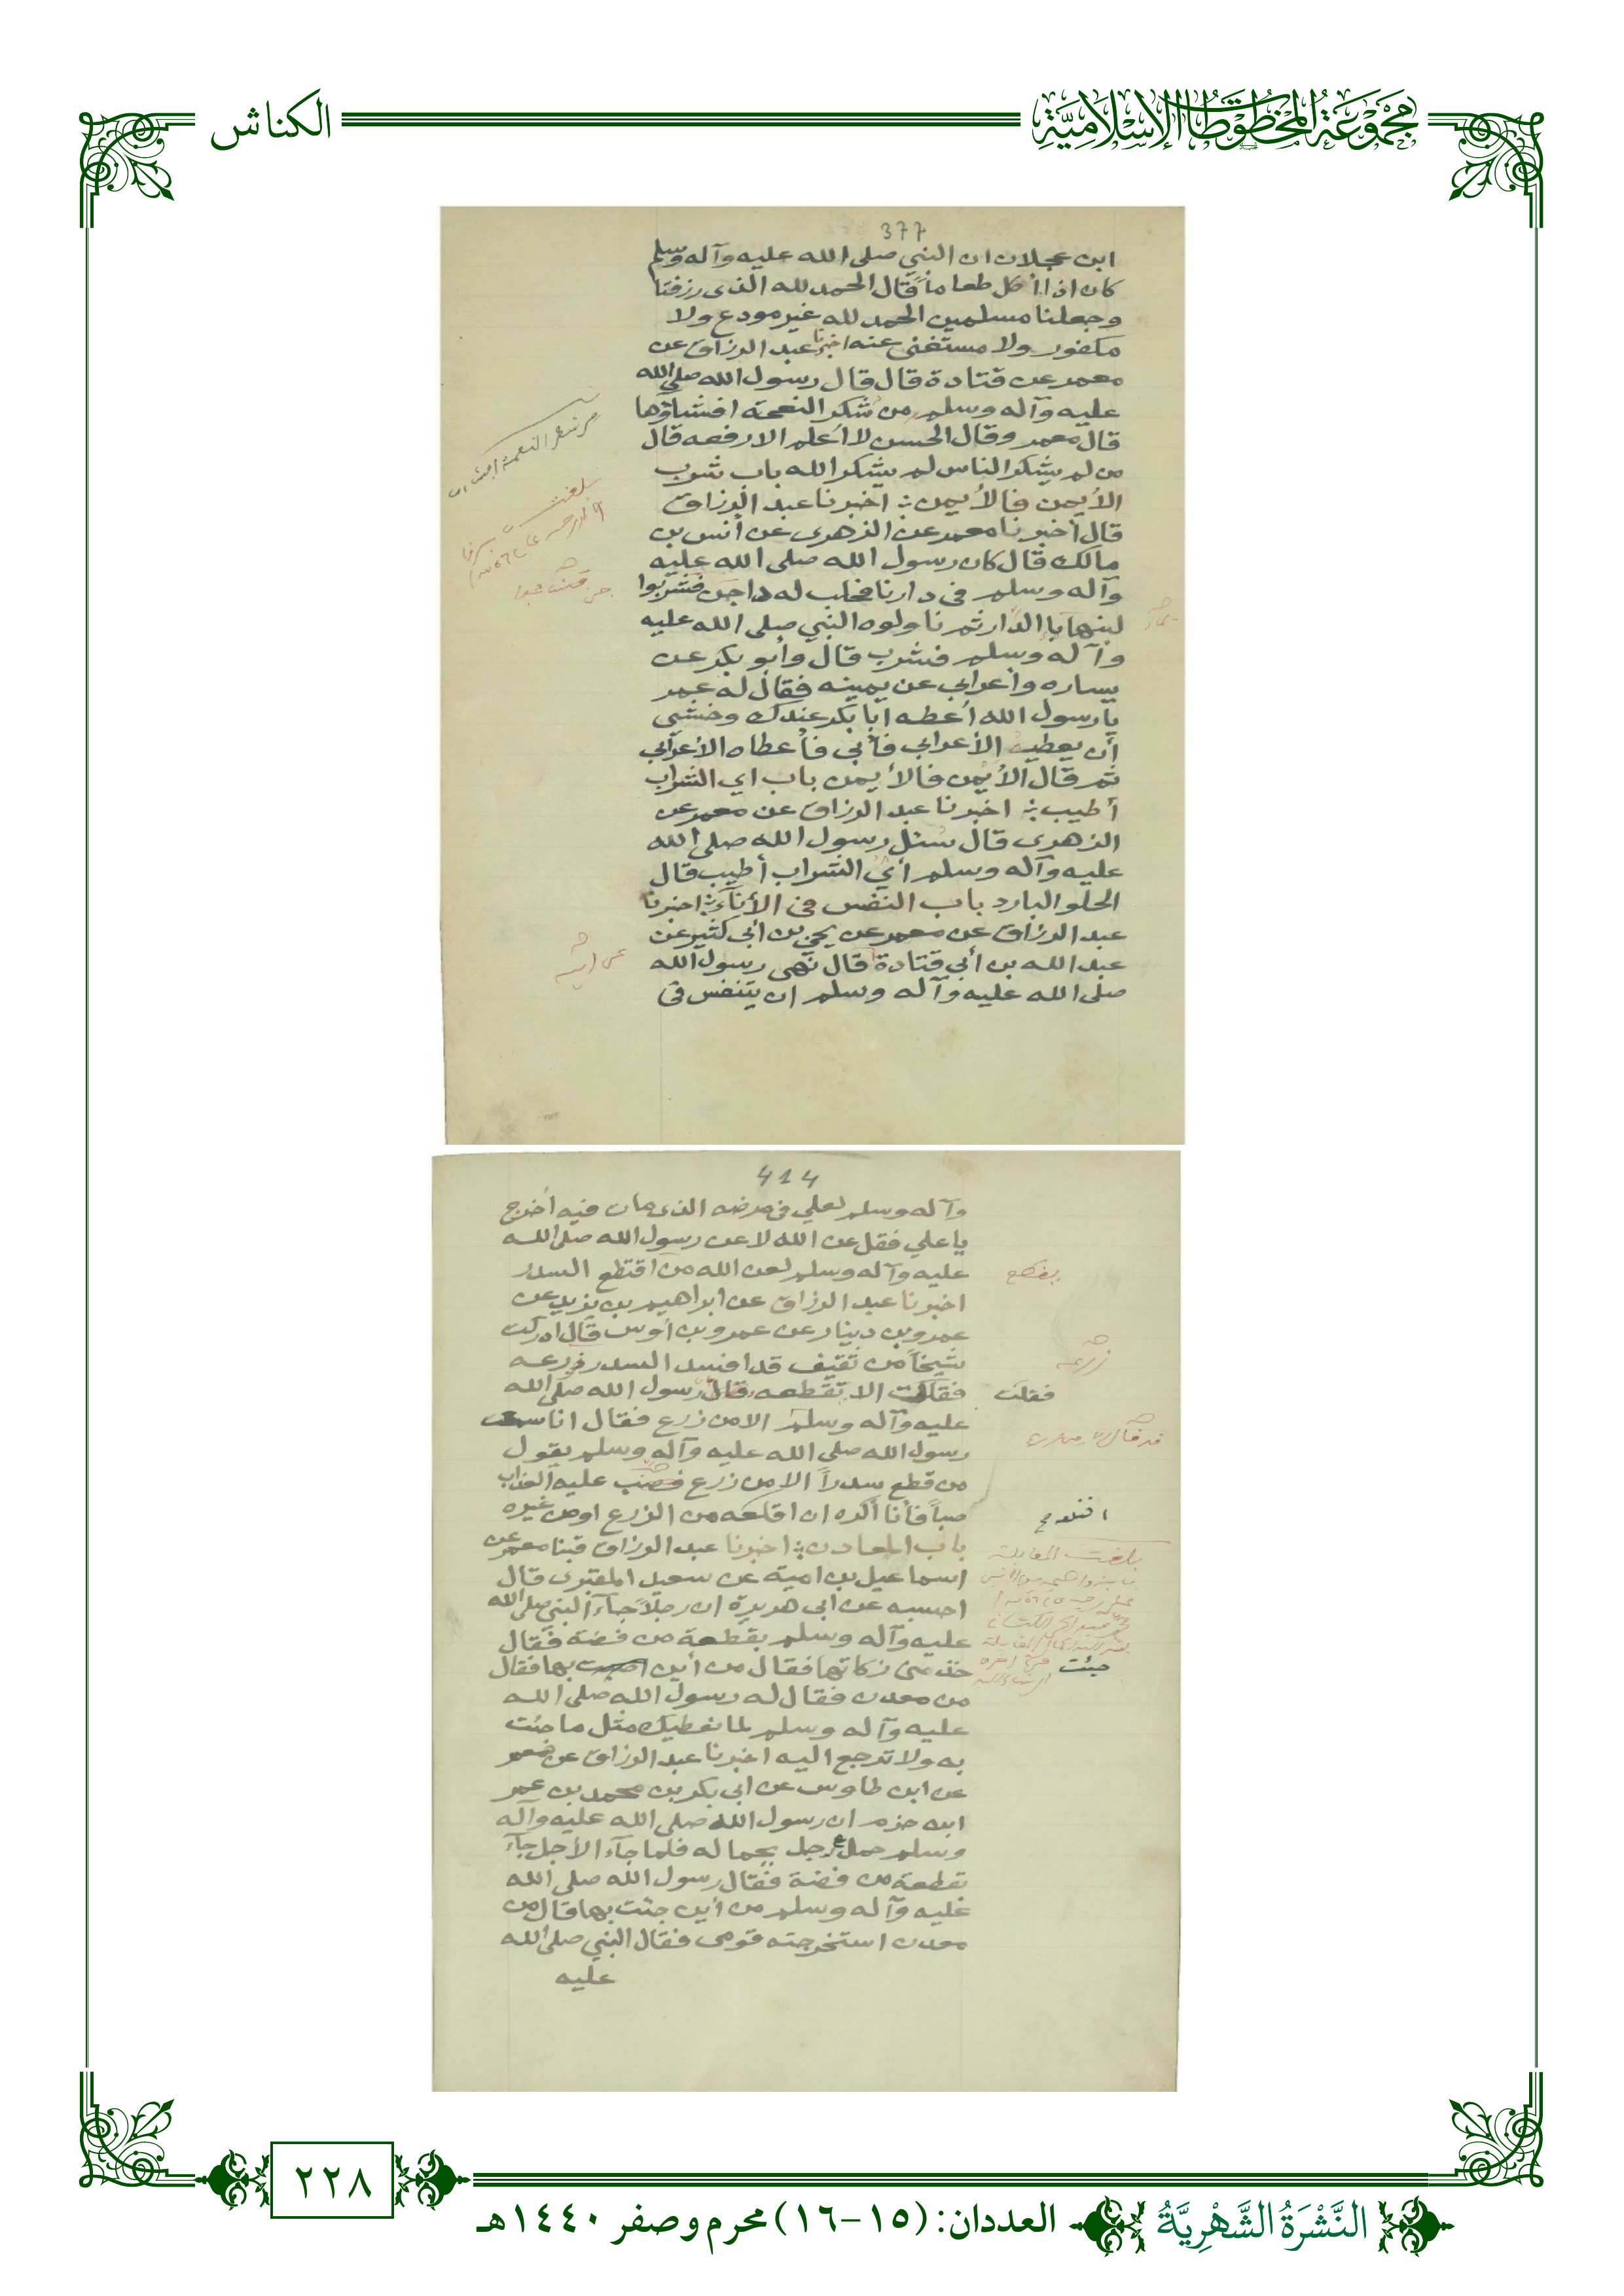 مجموعة المخطوطات الإسلامية
الكناش
377
ابن عجلان ان النبي صلى الله عليه وآله وسلم
كان اذا اكل طعاماً قال الحمد لله الذى رزقنا
وجعلنا مسلمين الحمد لله غير مودع ولا
مكفور ولا مستغنى عنه اخبرنا عبد الرزاق عن
معمر عن قتادة قال قال رسول الله صلى الله
عليه وآله وسلم من شكر النعمة افشاؤها
قال معمر وقال الحسن لا أعلم الا رفعه قال
من لم يشكر الناس لم يشكر الله باب شرب
الأيمن فالأيمن : اخبرنا عبد الرزاق
قال أخبرنا معمر عن الزهرى عن أنس بن
مالك قال كان رسول الله صلى الله عليه
وآله وسلم فى دارنا فحلب له داجن فشربوا
لبنها الدار ثم ناولوه النبي صلى الله عليه
وآله وسلم فشرب قال وأبو بكر عن
يساره وأعرابي عن يمينه فقال له عمر
يا رسول الله أعطه ابا بكر عندك وخشى
أن يعطيه الأعرابي فأبى فأعطاه الأعرابي
ثم قال الأيمن فالأيمن باب اي الشراب
أطيب : اخبرنا عبد الرزاق عن معمر عن
الزهرى قال سئل رسول الله صلى الله
عليه وآله وسلم أي الشراب أطيب قال
الحلو البارد باب النفس فى الأناء : اخبرنا
عبد الرزاق عن معمر عن يحيى بن أبى كثير عن
عبد الله بن أبي قتادة قال نهى رسول الله
صلى الله عليه وآله وسلم ان يتنفس فى
من شكر النعمة
بلغت
عن ابيه
414
وآله وسلم لعلي فى مرضه الذى مات فيه أخرج
يا علي فقل عن الله لا عن رسول الله صلى الله
عليه وآله وسلم لعن الله من اقتطع السدر
اخبرنا عبد الرزاق عن ابراهيم بن يزيد عن
عمرو بن دينار عن عمرو بن أوس قال ادركت
شيخاً من ثقيف قد افسد السدر زرعه
فقلت الا تقطعه قال رسول الله صلى الله
عليه وآله وسلم الا من زرع فقال انا سمعت
رسول الله صلى الله عليه وآله وسلم يقول
من قطع سدراً الا من زرع فصب عليه العذاب
صباً فأنا أكره ان اقلعه من الزرع اومن غيره
باب المعادن : اخبرنا عبد الرزاق قبنا معمر عن
اسماعيل بن امية عن سعيد المقبرى قال
احسبه عن ابى هريرة ان رجلاً جاء النبي صلى الله
عليه وآله وسلم بقطعة من فضة فقال
خذ منى زكاتها فقال من أين بها فقال
من معدن فقال له رسول الله صلى الله
عليه وآله وسلم لما نعطيك مثل ما جئت
به ولا ترجع اليه اخبرنا عبد الرزاق عن معمر
عن ابن طاوس عن ابى بكر بن محمد بن عمر
ابن حزم ان رسول الله صلى الله عليه وآله
وسلم حمل رجل بحماله فلما جاء الأجل جاء
بقطعة من فضة فقال رسول الله صلى الله
عليه وآله وسلم من أين جئت بها قال من
معدن استخرجته قومى فقال النبي صلى الله
عليه
زرعه
فقلت
بلغت المقابلة
جئت
٢٢٨
النَّشْرَةُ الشَّهْرِيَّةُ
العددان: (١٥-١٦) محرم وصفر ١٤٤٠هـ